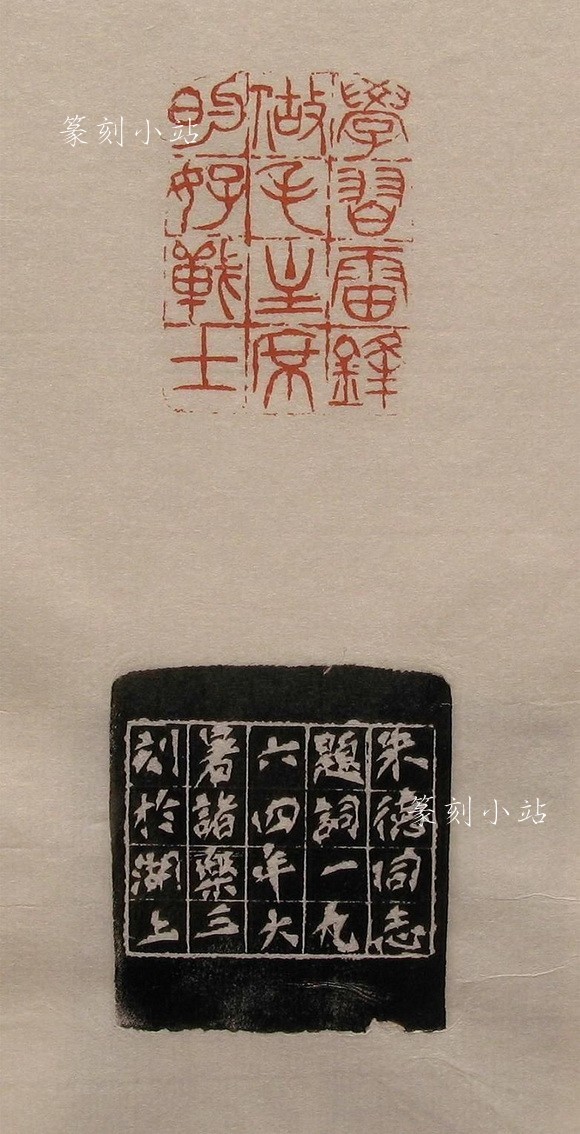 篆刻小站
學習雷鋒
做毛主席
的好戰士
朱德同志
題詞一九
六四年大
暑諸樂三
刻於湖上
篆刻小站